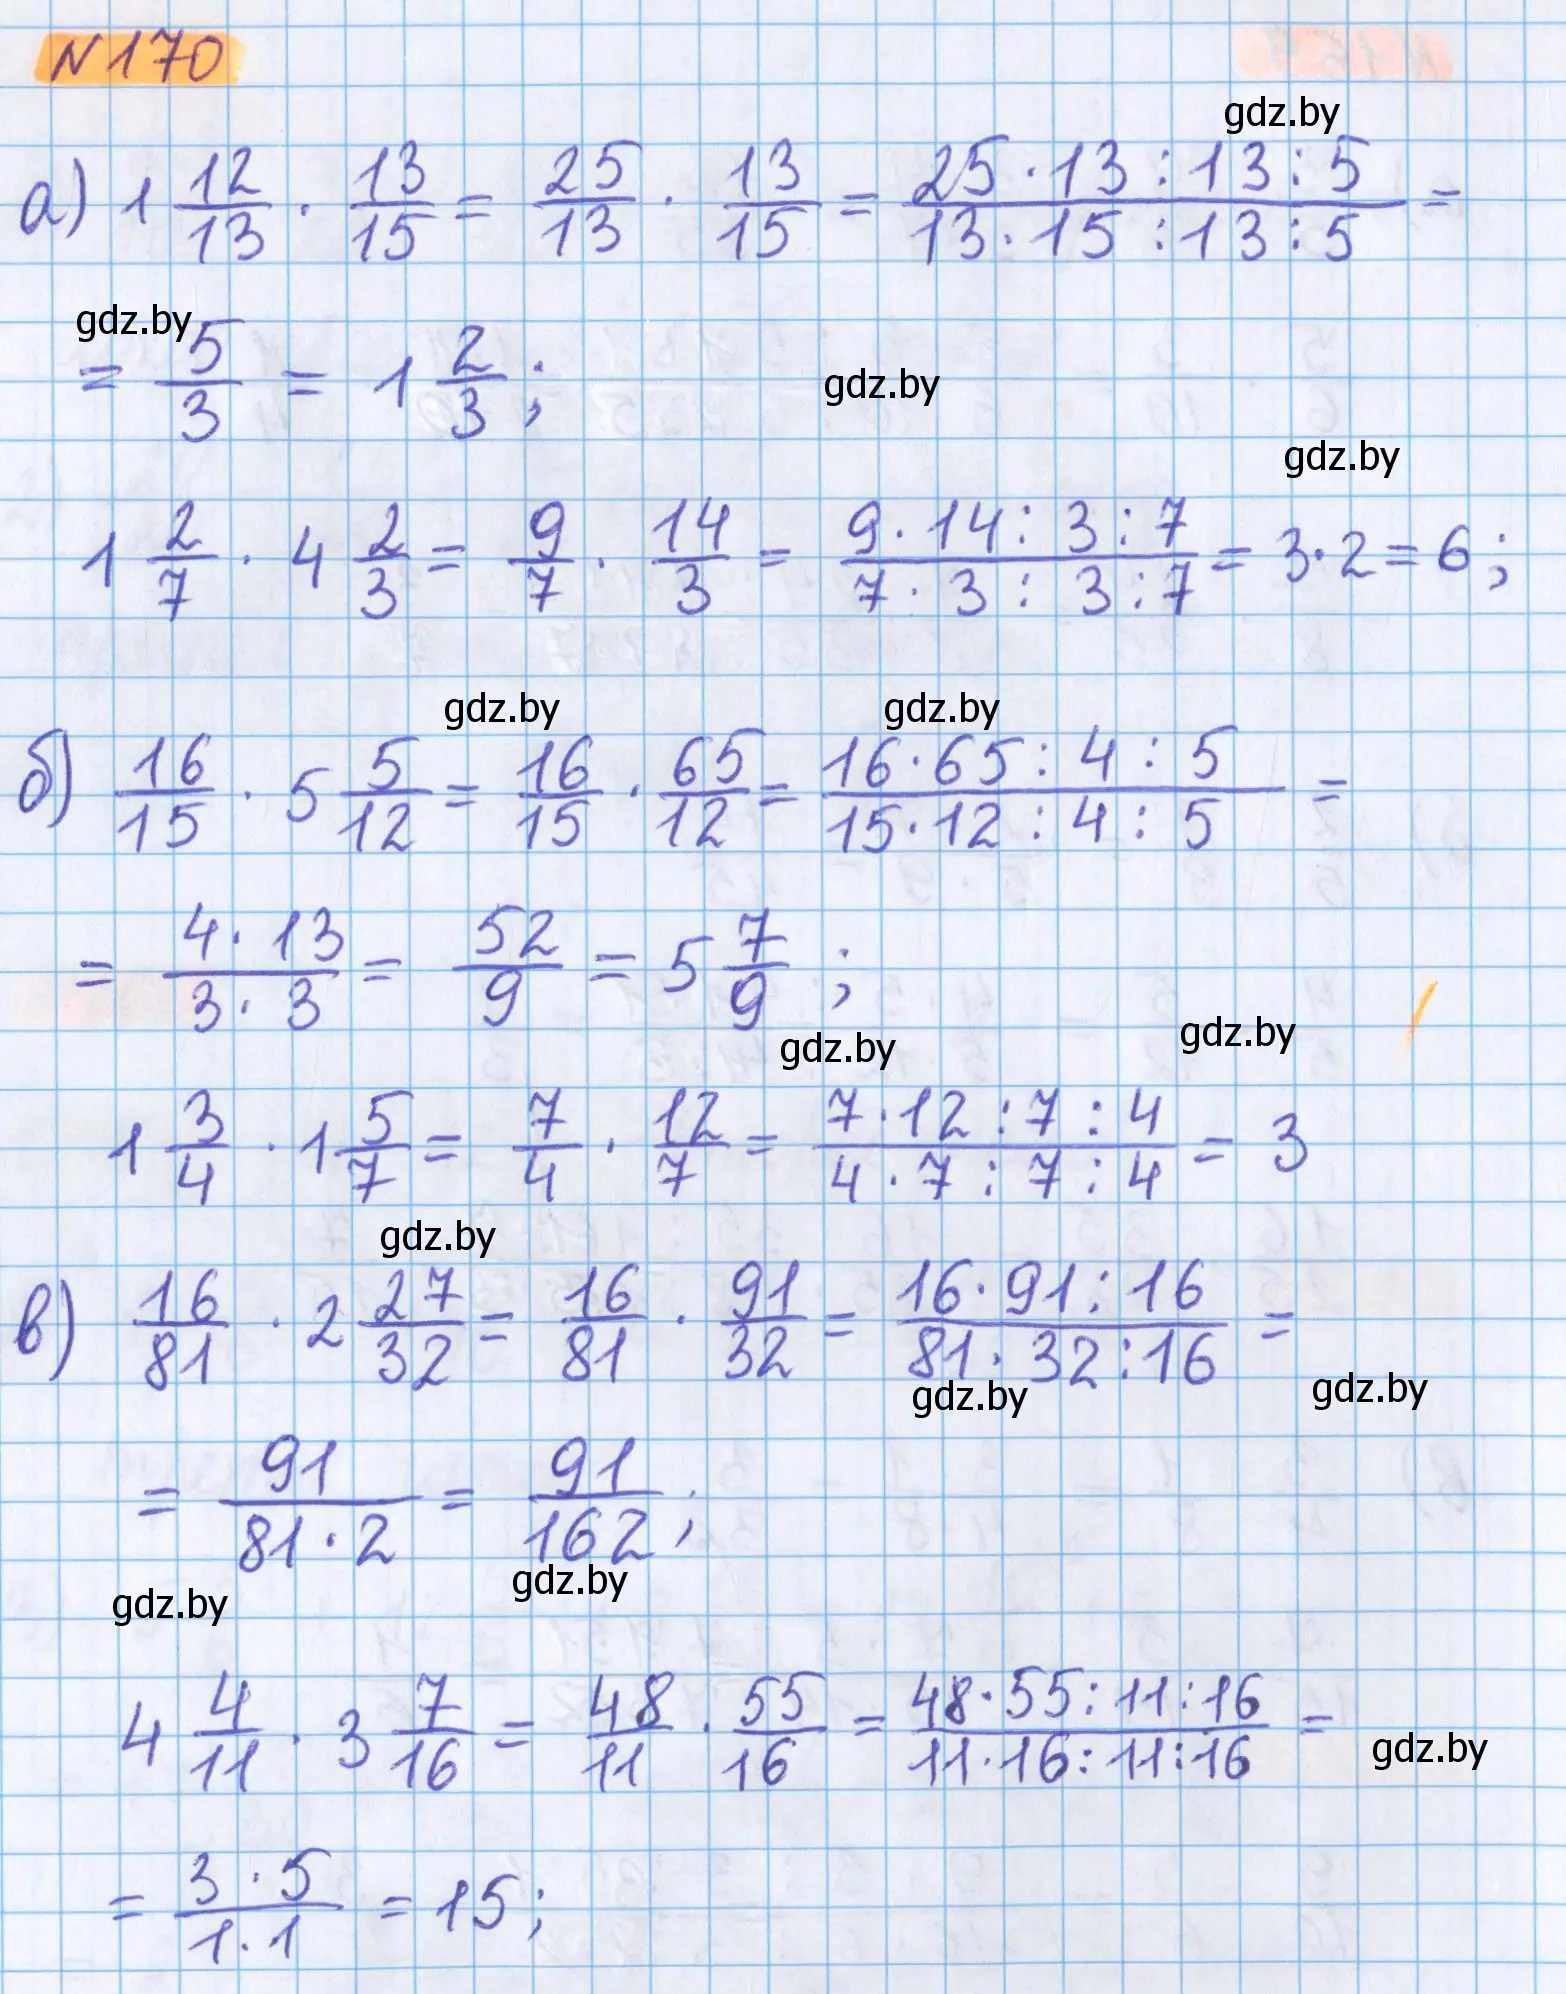 N170
gdz.by
а) 1 12/13 · 13/15 = 25/13 · 13/15 = (25·13:13:5)/(13·15:13:5) =
gdz.by
= 5/3 = 1 2/3;
gdz.by
gdz.by
1 2/7 · 4 2/3 = 9/7 · 14/3 = (9·14:3:7)/(7·3:3:7) = 3·2=6;
gdz.by gdz.by
б) 16/15 · 5 5/12 = 16/15 · 65/12 = (16·65:4:5)/(15·12:4:5) =
= (4·13)/(3·3) = 52/9 = 5 7/9;
gdz.by gdz.by
1 3/4 · 1 5/7 = 7/4 · 12/7 = (7·12:7:4)/(4·7:7:4) = 3
gdz.by
в) 16/81 · 2 27/32 = 16/81 · 91/32 = (16·91:16)/(81·32:16) =
gdz.by gdz.by
= 91/(81·2) = 91/162;
gdz.by gdz.by
4 4/11 · 3 7/16 = 48/11 · 55/16 = (48·55:11:16)/(11·16:11:16) =
gdz.by
= (3·5)/(1·1) = 15;